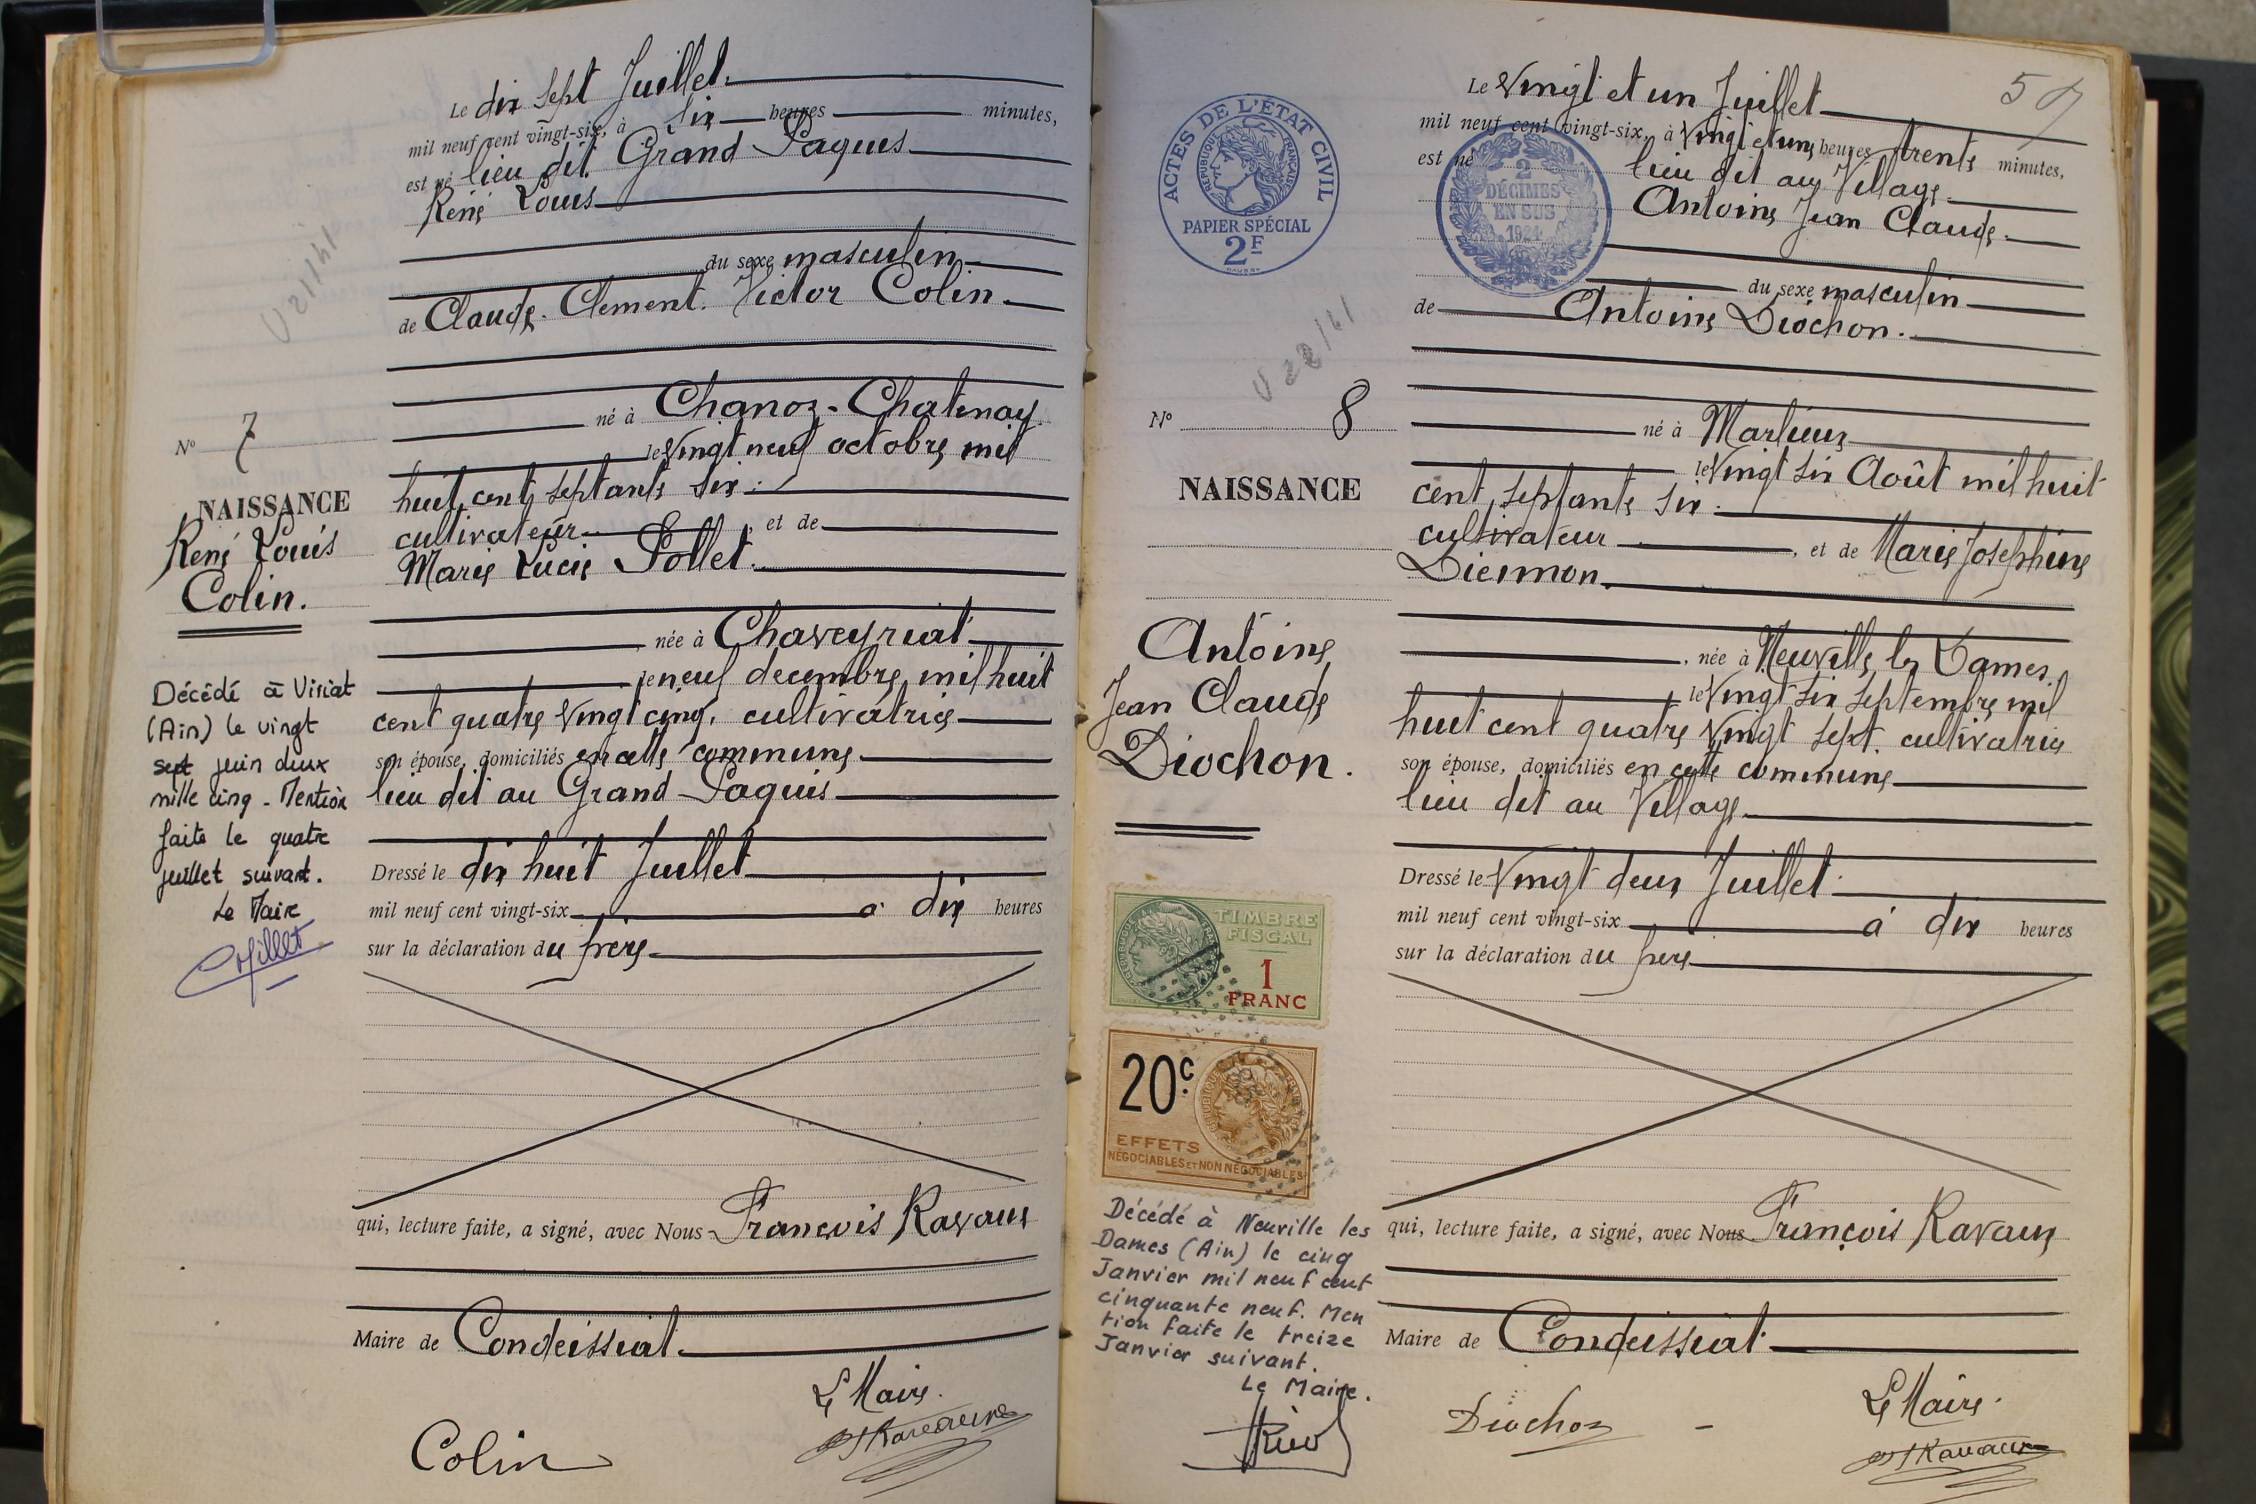 Le dix sept Juillet
mil neuf cent vingt-six, à six heures minutes,
est né lieu dit Grand Paquis
René Louis
du sexe masculin
de Claude Clement Victor Colin
né à Chanoz-Chatenay
le vingt neuf octobre mil
huit cent septante six
cultivateur, et de
Marie Lucie Pollet
née à Chaveyriat
le neuf decembre mil huit
cent quatre vingt cinq, cultivatrice
son épouse, domiciliés en cette commune
lieu dit au Grand Paquis
Dressé le dix huit Juillet
mil neuf cent vingt-six à dix heures
sur la déclaration du père
qui, lecture faite, a signé, avec Nous François Ravaux
Maire de Condeissiat
Le Maire.
Colin
N° 7
NAISSANCE
René Louis
Colin.
Décédé à Viriat
(Ain) le vingt
sept juin deux
mille cinq - Mention
faite le quatre
juillet suivant.
Le Maire
57
ACTES DE L'ÉTAT CIVIL
RÉPUBLIQUE FRANÇAISE
PAPIER SPÉCIAL
2F
2
DÉCIMES
EN SUS
1924
Le vingt et un Juillet
mil neuf cent vingt-six, à vingt et une heures trente minutes,
est né lieu dit au Village
Antoine Jean Claude
du sexe masculin
de Antoine Diochon.
né à Marlieux
le vingt six Août mil huit
cent septante six
cultivateur, et de Marie Joséphine
née à Neuville les Dames
le vingt six septembre mil
huit cent quatre vingt sept, cultivatrice
son épouse, domiciliés en cette commune
lieu dit au Village
Dressé le vingt deux Juillet
mil neuf cent vingt-six à dix heures
sur la déclaration du père
qui, lecture faite, a signé, avec Nous François Ravaux
Maire de Condeissiat
Le Maire.
Diochon
N° 8
NAISSANCE
Antoine
Jean Claude
Diochon.
TIMBRE
FISCAL
1
FRANC
20c
EFFETS
NÉGOCIABLES ET NON NÉGOCIABLES
Décédé à Neuville les
Dames (Ain) le cinq
Janvier mil neuf cent
cinquante neuf. Men
tion faite le treize
Janvier suivant.
Le Maire.